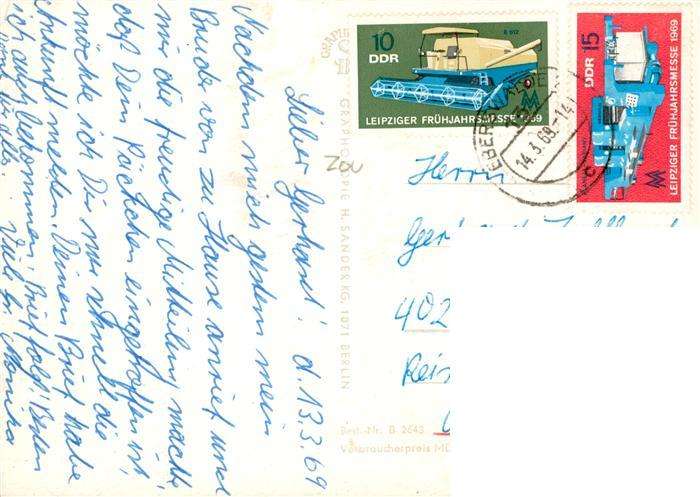 Lieber Gerhard! d. 13.3.69
Nachdem mich gestern mein
Bruder von zu Hause anrief und
mir die freudige Mitteilung machte
daß Dein Päckchen eingetroffen ist,
möchte ich Dir nur schnell die
werden. Deinen Brief habe
ich auch bekommen. Brief folgt!
Viele Gr. Monika
10
DDR
E 512
LEIPZIGER FRÜHJAHRSMESSE 1969
DDR 15
LEIPZIGER FRÜHJAHRSMESSE 1969
14.3.69-14
GRAPHOKOPIE H. SANDER KG, 1071 BERLIN
Herrn
402
Best.-Nr. B 2643
Verbraucherpreis